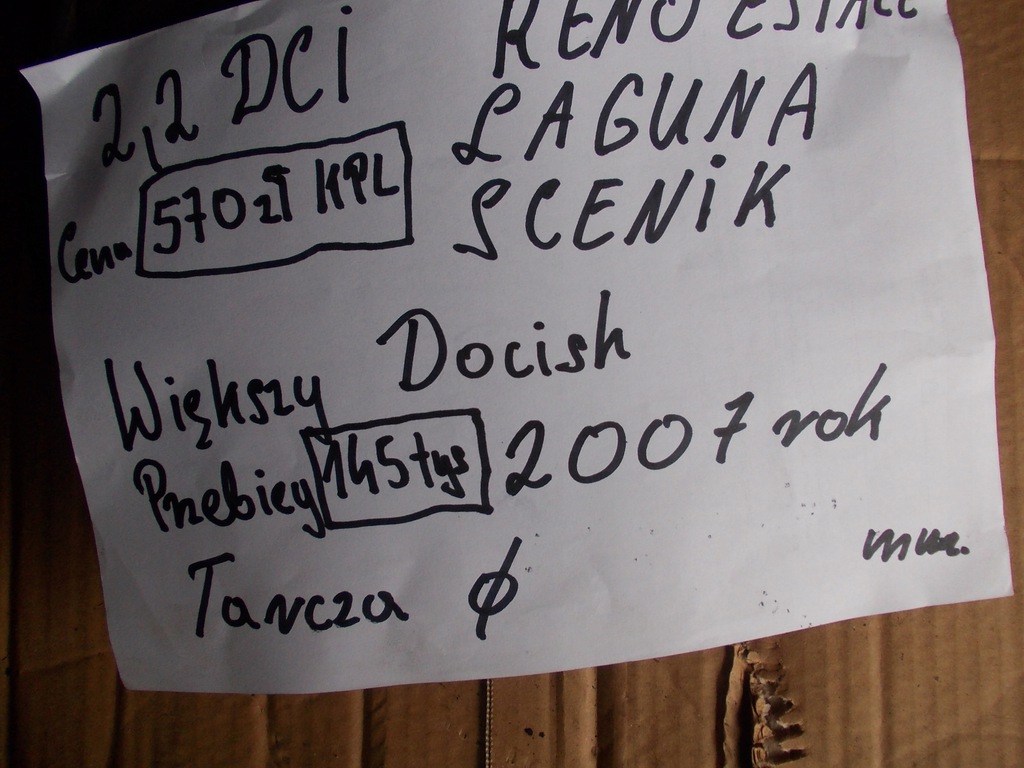 2,2 DCI RENO ESPACE
LAGUNA
Cena 570 zł KPL SCENIK
Większy Docisk
Przebieg 145 tys 2007 rok
Tarcza ϕ mm.